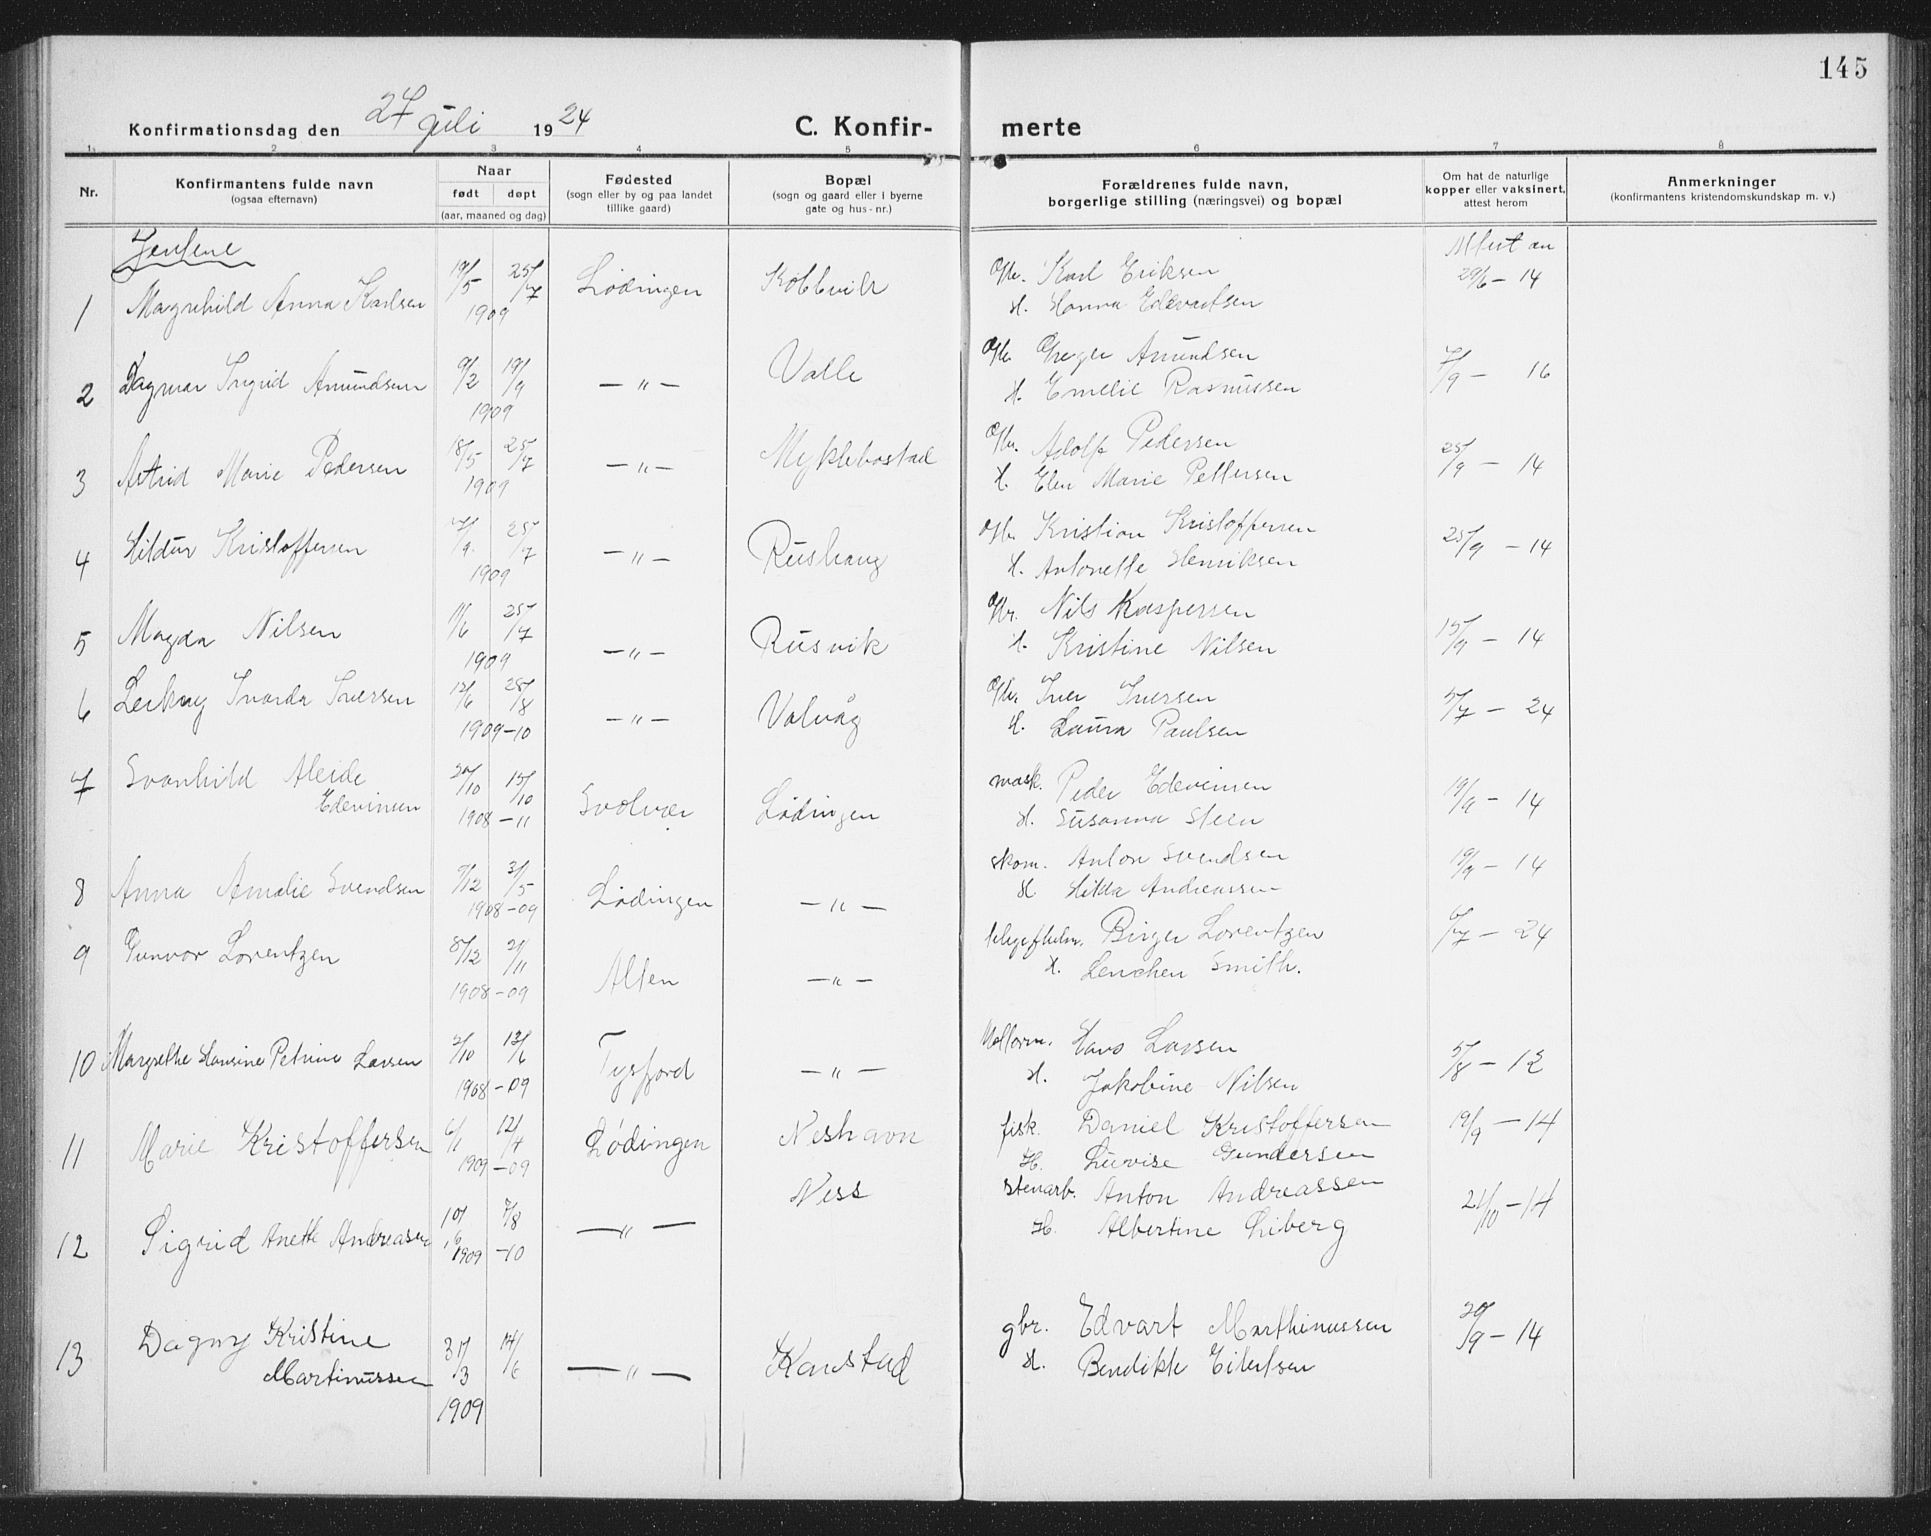 145
Konfirmationsdag den 27 juli 1924
C. Konfirmerte
1. 2 3 4 5 6 7 8
Nr.
Konfirmantens fulde navn
(ogsaa efternavn)
Naar
født døpt
(aar, maaned og dag)
Fødested
(sogn eller by og paa landet
tillike gaard)
Bopæl
(sogn og gaard eller i byerne
gate og hus-nr.)
Forældrenes fulde navn,
borgerlige stilling (næringsvei) og bopæl
Om hat de naturlige
kopper eller vaksinert,
attest herom
Anmerkninger
(konfirmantens kristendomskundskap m. v.)
Jentene
1 Magnhild Anna Karlsen 19/5 25/7 1909 Lødingen Kobbvik Gbr. Karl Eriksen
H. Hanna Edevartsen Attest av 29/6 - 14
2 Dagmar Ingrid Amundsen 9/2 19/9 1909 -"- Valle Gbr Greger Amundsen
H. Emelie Rasmussen 7/9 - 16
3 Astrid Marie Pedersen 18/5 25/7 1909 -"- Myklebostad Gbr. Adolf Pedersen
H. Elen Marie Pettersen 25/9 - 14
4 Hildur Kristoffersen 25/7 1909 -"- Rushaug Gbr Kristian Kristoffersen
H. Antonette Henriksen 25/9 - 14
5 Magda Nilsen 11/6 25/7 1909 -"- Rusvik Gbr. Nils Kaspersen
H. Kristine Nilsen 15/9 - 14
6 Iversen 12/6 28/8 1909-10 -"- Valvåg Gbr. Iver Iversen
H. Laura Paulsen 5/7 - 24
7 Svanhild Aleide
Edevinsen 20/10 15/10 1908-11 Svolvær Lødingen mask. Peder Edevinsen
H. Susanna Steen 19/9 - 14
8 Anna Amalie Svendsen 9/12 3/5 1908-09 Lødingen -"- skom. Anton Svendsen
H Hilda Andreassen 19/9 - 14
9 Gunvor Lorentzen 8/12 2/11 1908-09 Alten -"- Birger Lorentzen
H. Lenchen Smith. 6/7 - 24
10 Margrethe Hansine Petrine Larsen 2/10 13/6 1908-09 Tysfjord -"- Hans Larsen
H. Jakobine Nilsen 5/8 - 12
11 Marie Kristoffersen 6/1 12/4 1909-09 Lødingen Neshavn fisk. Daniel Kristoffersen
H. Luvise Gundersen 19/9 - 14
12 Sigrid Anette Andreasen 10/6 7/8 1909-10 -"- Ness stenarb. Anton Andreassen
H. Albertine Liberg 21/10 - 14
13 Dagny Kristine
Martinussen 31/3 14/6 1909 -"- Kanstad gbr. Edvart Marthinussen
H. Bendikte Eilertsen 20/9 - 14